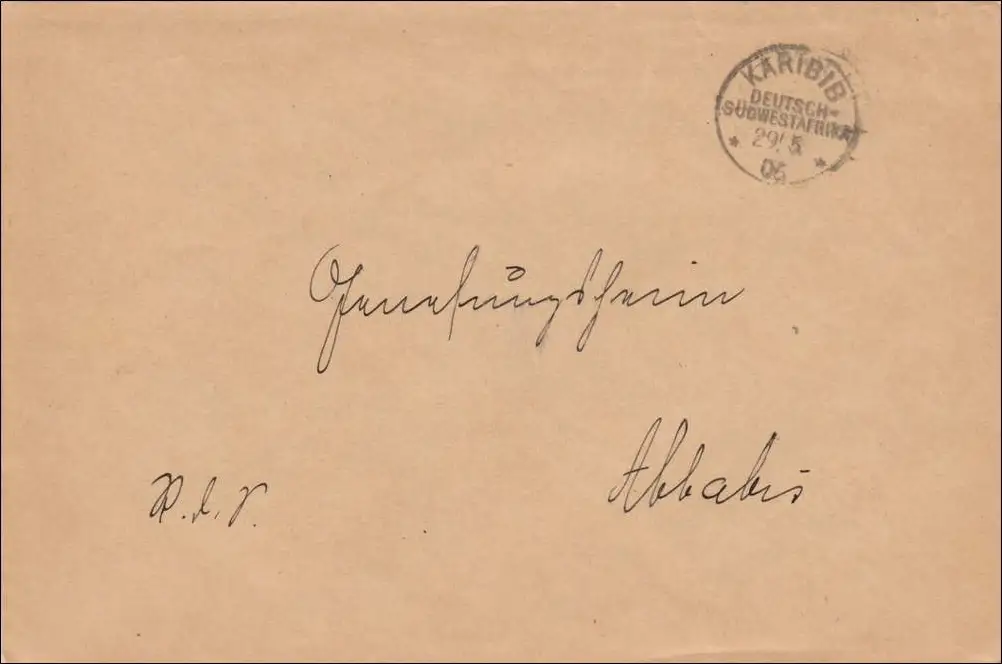 KARIBIB
DEUTSCH-
SÜDWESTAFRIKA
29/5
06
Genesungsheim
Abbabis